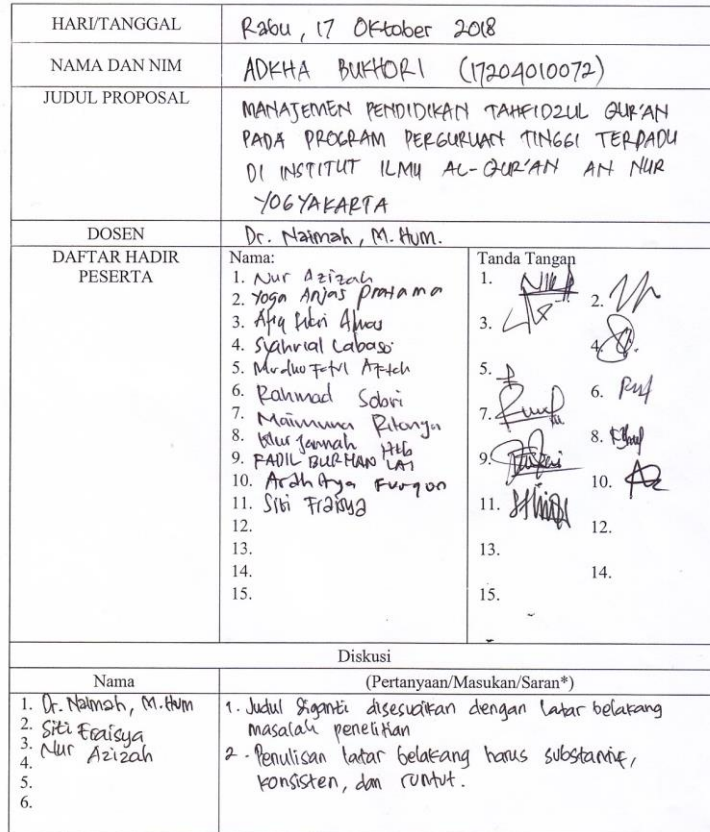 HARI/TANGGAL
Rabu, 17 Oktober 2018
NAMA DAN NIM
ADKHA BUKHORI (17204010072)
JUDUL PROPOSAL
MANAJEMEN PENDIDIKAN TAHFIDZUL QUR'AN
PADA PROGRAM PERGURUAN TINGGI TERPADU
DI INSTITUT ILMU AL-QUR'AN AN NUR
YOGYAKARTA
DOSEN
Dr. Naimah, M.Hum.
DAFTAR HADIR
PESERTA
Nama:
1. Nur Azizah
2. Yoga Anjas Pratama
3. Afiq Fikri
4. Syahrial Labaso
5.
6. Rahmad Sobri
7. Maimuna Ritonga
8. Nur Jannah Htb
9. FADIL BURHAN
10. Ardh Arya Furqon
11. Siti Fraisya
12.
13.
14.
15.
Tanda Tangan
1.
2.
3.
4.
5.
6.
7.
8.
9.
10.
11.
12.
13.
14.
15.
Diskusi
Nama
(Pertanyaan/Masukan/Saran*)
1. Dr. Naimah, M.Hum
2. Siti Fraisya
3. Nur Azizah
4.
5.
6.
1. Judul diganti disesuaikan dengan latar belakang
masalah penelitian
2. Penulisan latar belakang harus substantif,
konsisten, dan runtut.